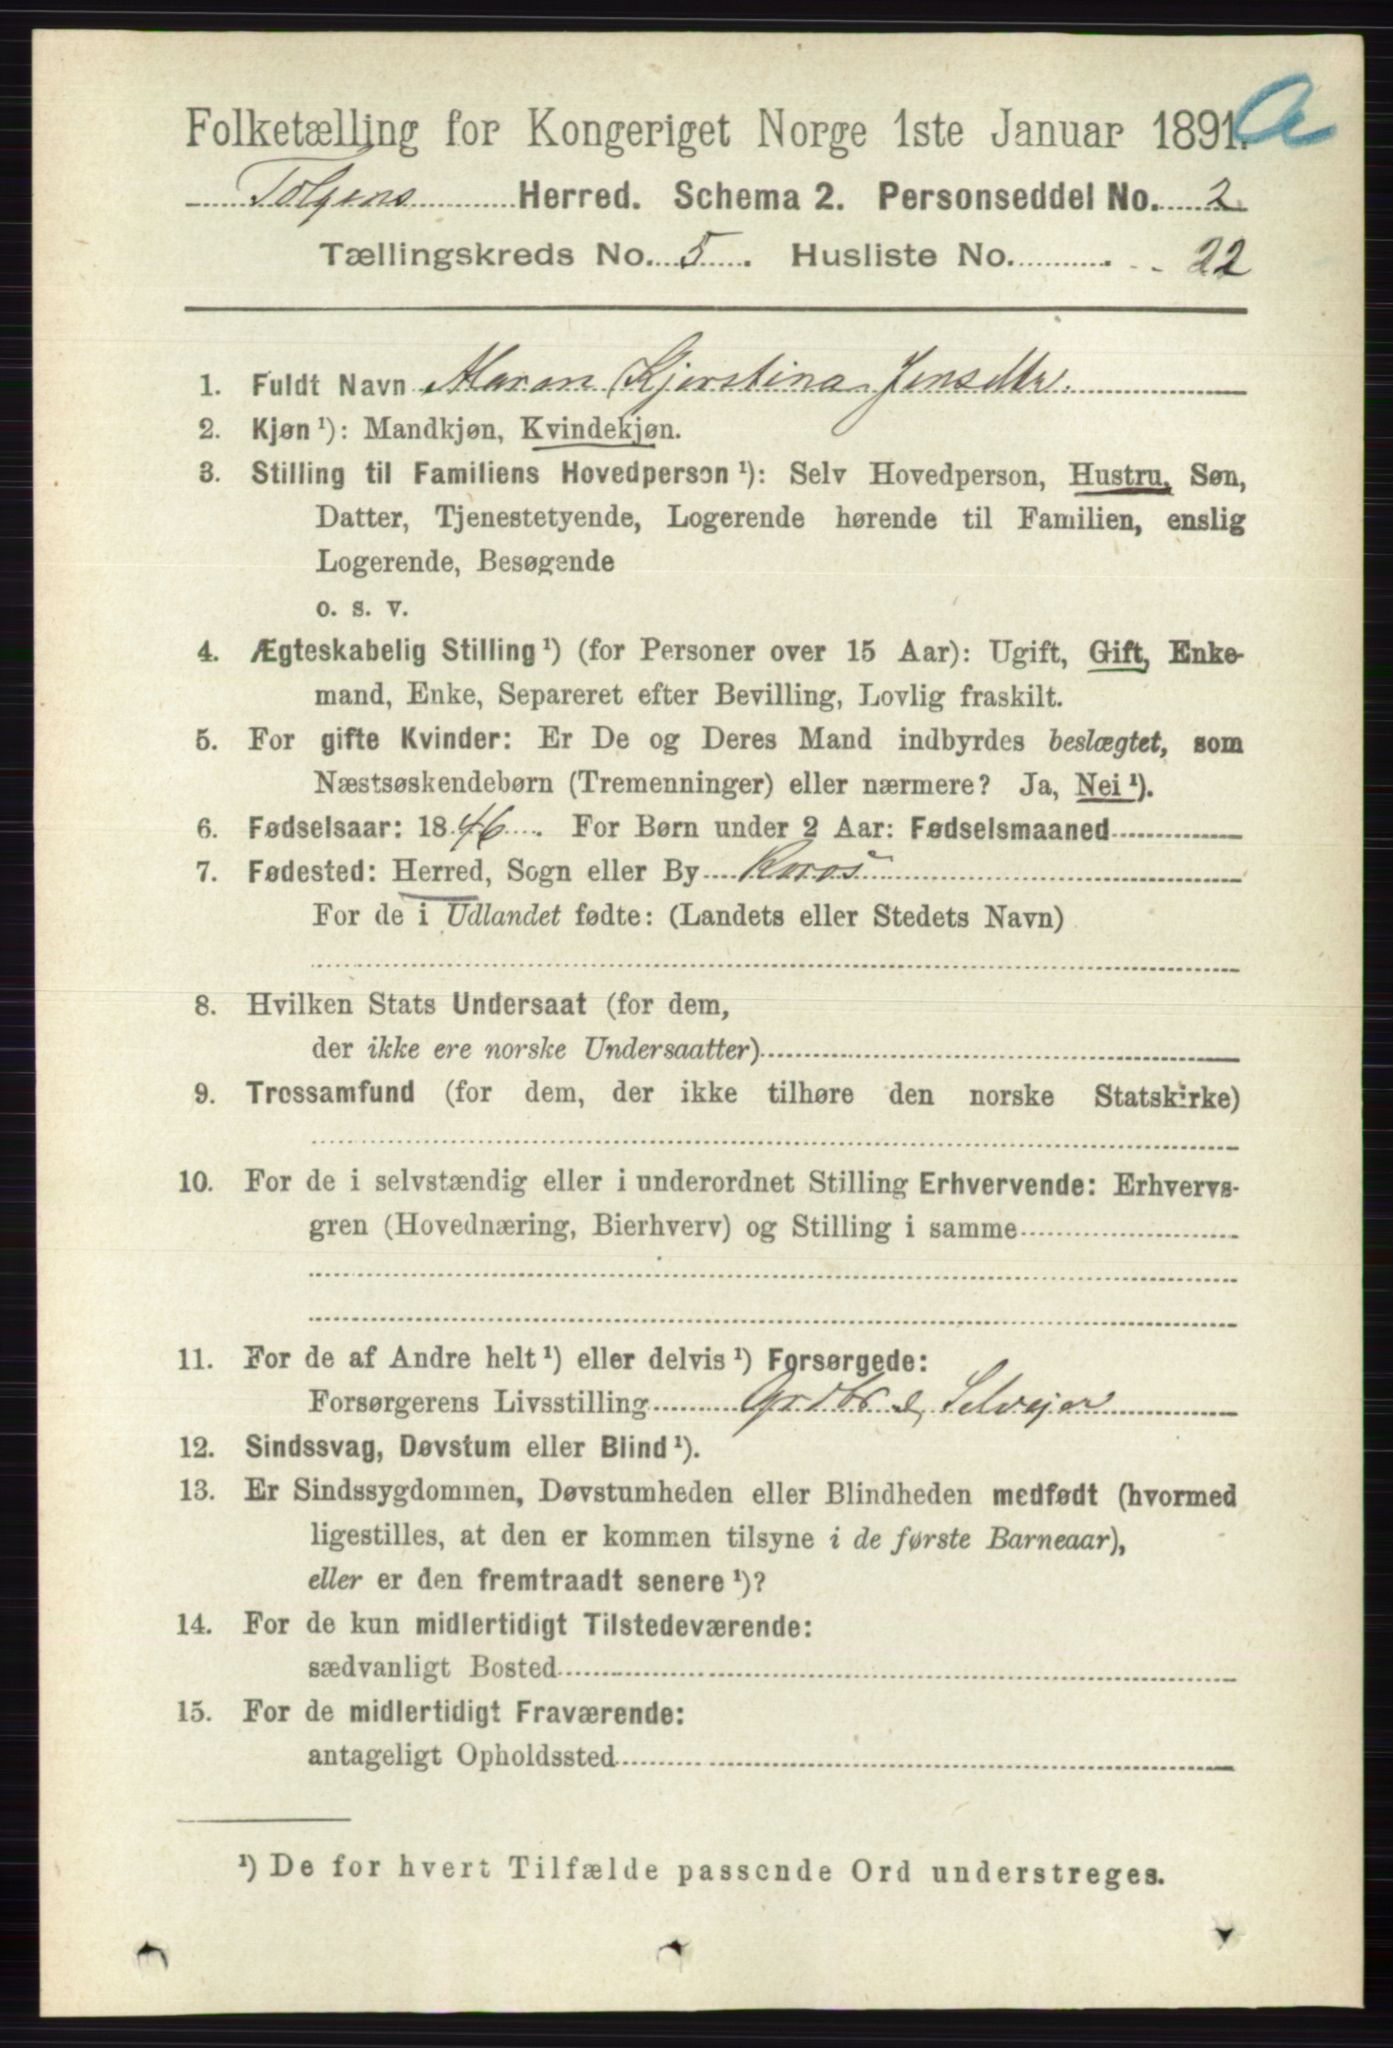 Folketælling for Kongeriget Norge 1ste Januar 1891. a
Tolgens Herred. Schema 2. Personseddel No. 2
Tællingskreds No. 5. Husliste No. 22
1. Fuldt Navn Maren Kjerstina Jensdtr.
2. Kjøn ¹): Mandkjøn, Kvindekjøn.
3. Stilling til Familiens Hovedperson ¹): Selv Hovedperson, Hustru, Søn,
Datter, Tjenestetyende, Logerende hørende til Familien, enslig
Logerende, Besøgende
o. s. v.
4. Ægteskabelig Stilling ¹) (for Personer over 15 Aar): Ugift, Gift, Enke-
mand, Enke, Separeret efter Bevilling, Lovlig fraskilt.
5. For gifte Kvinder: Er De og Deres Mand indbyrdes beslægtet, som
Næstsøskendebørn (Tremenninger) eller nærmere? Ja, Nei ¹).
6. Fødselsaar: 1846. For Børn under 2 Aar: Fødselsmaaned
7. Fødested: Herred, Sogn eller By Roros
For de i Udlandet fødte: (Landets eller Stedets Navn)
8. Hvilken Stats Undersaat (for dem,
der ikke ere norske Undersaatter)
9. Trossamfund (for dem, der ikke tilhøre den norske Statskirke)
10. For de i selvstændig eller i underordnet Stilling Erhvervende: Erhvervs-
gren (Hovednæring, Bierhverv) og Stilling i samme
11. For de af Andre helt ¹) eller delvis ¹) Forsørgede:
Forsørgerens Livsstilling Grdbr. Selvejer
12. Sindssvag, Døvstum eller Blind ¹).
13. Er Sindssygdommen, Døvstumheden eller Blindheden medfødt (hvormed
ligestilles, at den er kommen tilsyne i de første Barneaar),
eller er den fremtraadt senere ¹)?
14. For de kun midlertidigt Tilstedeværende:
sædvanligt Bosted
15. For de midlertidigt Fraværende:
antageligt Opholdssted
¹) De for hvert Tilfælde passende Ord understreges.